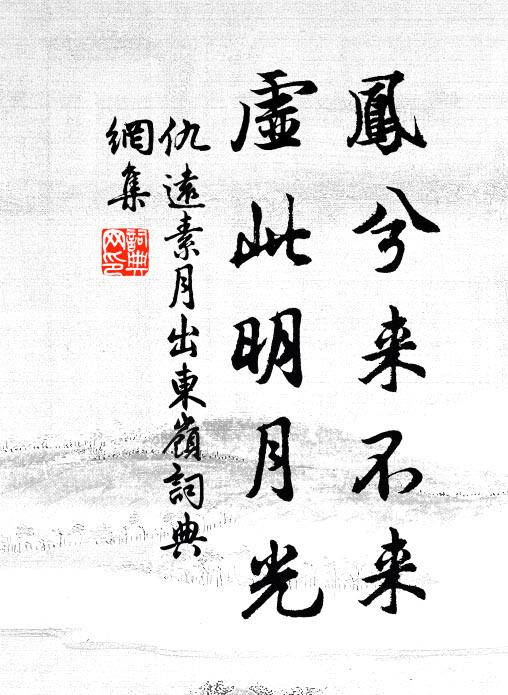 鳳兮来不来
虛此明月光
仇遠素月出東嶺詞典
網集
詞典
网印